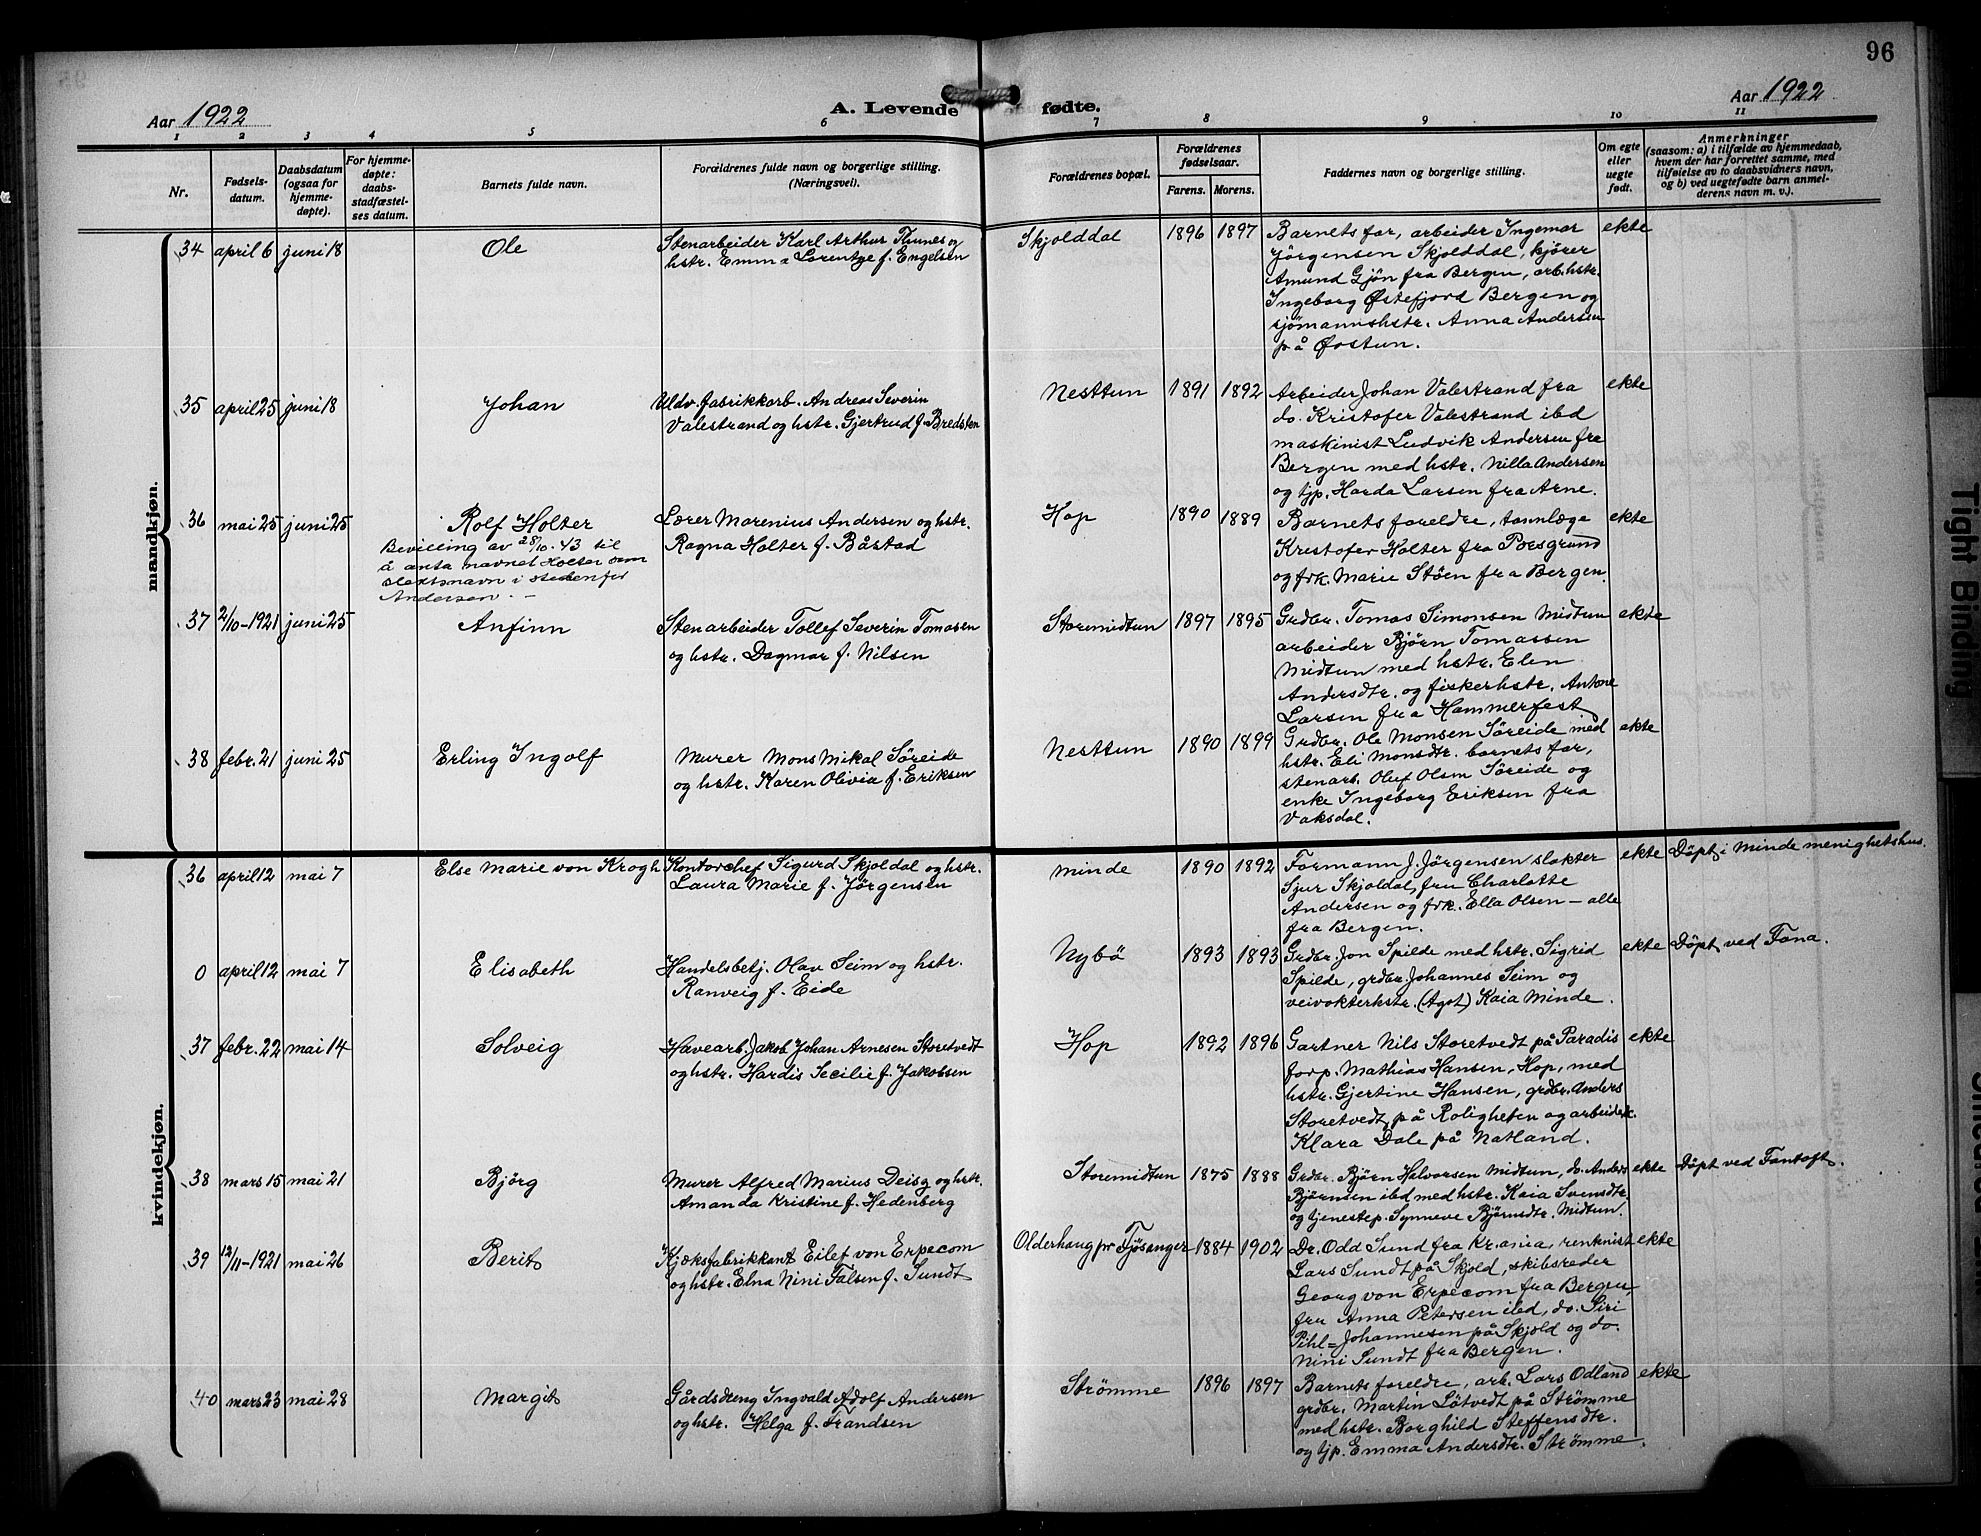 96
Aar 1922
A. Levende fødte.
Aar 1922
1 2 3 4 5 6 7 8 9 10 11
Nr.
Fødsels-
datum.
Daabsdatum
(ogsaa for
hjemme-
døpte).
For hjemme-
døpte:
daabs-
stadfæstel-
ses datum.
Barnets fulde navn.
Forældrenes fulde navn og borgerlige stilling.
(Næringsvei).
Forældrenes bopæl.
Forældrenes
fødselsaar.
Farens. Morens.
Faddernes navn og borgerlige stilling.
Om egte
eller
uegte
født.
Anmerkninger
(saasom: a) i tilfælde av hjemmedaab,
hvem der har forrettet samme, med
tilføielse av to daabsvidners navn,
og b) ved uegtefødte barn anmel-
derens navn m. v.).
mandkjøn.
34 april 6 juni 18 Ole
Stenarbeider Karl Arthur Thunes og
hstr. Emma Lorentze f. Engelsen
Skjolddal 1896 1897
Barnets far, arbeider Ingemar
Jörgensen Skjolddal, kjører
Amund Gjön fra Bergen, arb.hstr.
Ingeborg Østefjord Bergen og
sjömannshstr. Anna Andersen
på Øvstun.
ekte
35 april 25 juni 18 Johan
Uldv.fabrikkarb. Andreas Severin
Valestrand og hstr. Gjertrud f. Bredsten
Nesttun 1891 1892
Arbeider Johan Valestrand fra
do. Kristofer Valestrand ibd
maskinist Ludvik Andersen fra
Bergen med hstr. Nilla Andersen
og tjp. Harda Larsen fra Arne.
ekte
36 mai 25 juni 25 Rolf Holter
Bevilling av 28/10.43 til
å anta navnet Holter som
slektsnavn i stedenfor
Andersen. -
Lærer Marenius Andersen og hstr.
Ragna Holter f. Båstad
Hop 1890 1889
Barnets foreldre, tannlæge
Kristofer Holter fra Porsgrund
og frk. Marie Stöen fra Bergen.
ekte
37 2/10-1921 juni 25 Anfinn
Stenarbeider Tollef Severin Tomasen
og hstr. Dagmar f. Nilsen
Storemidtun 1897 1895
Grdbr. Tomas Simonsen Midtun
arbeider Björn Tomassen
Midtun med hstr. Elen
Andersdtr. og fiskerhstr. Antone
Larsen fra Hammerfest
ekte
38 febr. 21 juni 25 Erling Ingolf
Murer Mons Mikal Söreide
og hstr. Karen Olivia f. Eriksen
Nesttun 1890 1899
Grdbr. Ole Monsen Söreide med
hstr. Eli Monsdtr. barnets far,
stenarb. Oluf Olsen Söreide og
enke Ingeborg Eriksen fra
Vaksdal.
ekte
kvindekjøn.
36 april 12 mai 7 Else Marie von Krogh
Kontorchef Sigurd Skjoldal og hstr.
Laura Marie f. Jörgensen
Minde 1890 1892
Formann J. Jörgensen slakter
Sjur Skjoldal, fru Charlotte
Andersen og frk. Ella Olsen - alle
fra Bergen.
ekte Döpt i Minde menighetshus.
0 april 12 mai 7 Elisabeth
Handelsbetj. Olav Seim og hstr.
Ranveig f. Eide
Nybö 1893 1893
Grdbr. Jon Spilde med hstr. Sigrid
Spilde, grdbr. Johannes Seim og
veivokterhstr. (Agot) Kaia Minde.
ekte Döpt ved Fana.
37 febr. 22 mai 14 Solveig
Havearb. Jakob Johan Arnesen Storetvedt
og hstr. Hardis Secilie f. Jakobsen
Hop 1892 1896
Gartner Nils Storetvedt på Paradis
forp. Mathias Hansen, Hop, med
hstr. Gjertine Hansen, grdbr. Anders
Storetvedt på Roligheten og arbeidek.
Klara Dale på Natland.
ekte
38 mars 15 mai 21 Björg
Murer Alfred Marius Deisz og hstr.
Amanda Kristine f. Hedenberg
Storemidtun 1875 1888
Grdbr. Björn Halvorsen Midtun, do. Anders
Björnsen ibd med hstr. Kaia Svensdtr.
og tjenestep. Synneve Björnsdtr. Midtun.
ekte Döpt ved Fantoft.
39 12/11-1921 mai 26 Berit
Kjæksfabrikkant Eilef von Erpecom
og hstr. Elna Nini Falsen f. Sundt
Olderhaug pr Fjösanger 1884 1902
Dr. Odd Sund fra Kr.ania, rentnist
Lars Sundt på Skjold, skibsreder
Georg von Erpecom fra Bergen,
fru Anna Petersen ibd, do. Siri
Pihl=Johannesen på Skjold og do.
Nini Sundt fra Bergen.
ekte
40 mars 23 mai 28 Margit
Gårdsdreng Ingvald Adolf Andersen
og hstr. Helga f. Frandsen
Strömme 1896 1897
Barnets foreldre, arb. Lars Odland
grdbr. Martin Lötvedt på Strömme
med hstr. Borghild Steffensdtr.
og tjp. Emma Andersdtr. Strömme.
ekte
Tight Binding